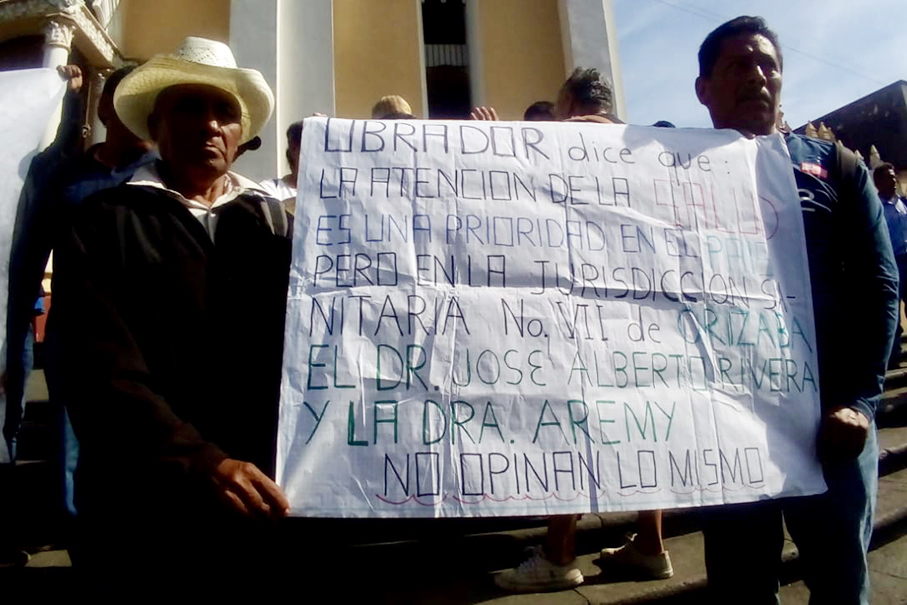 LOBRADOR dice que:
LA ATENCION DE LA SALUD
ES UNA PRIORIDAD EN EL PAIS
PERO EN LA JURISDICCION SA-
NITARIA No. VII de ORIZABA
EL DR. JOSE ALBERTO RIVERA
Y LA DRA. AREMY
NO OPINAN LO MISMO